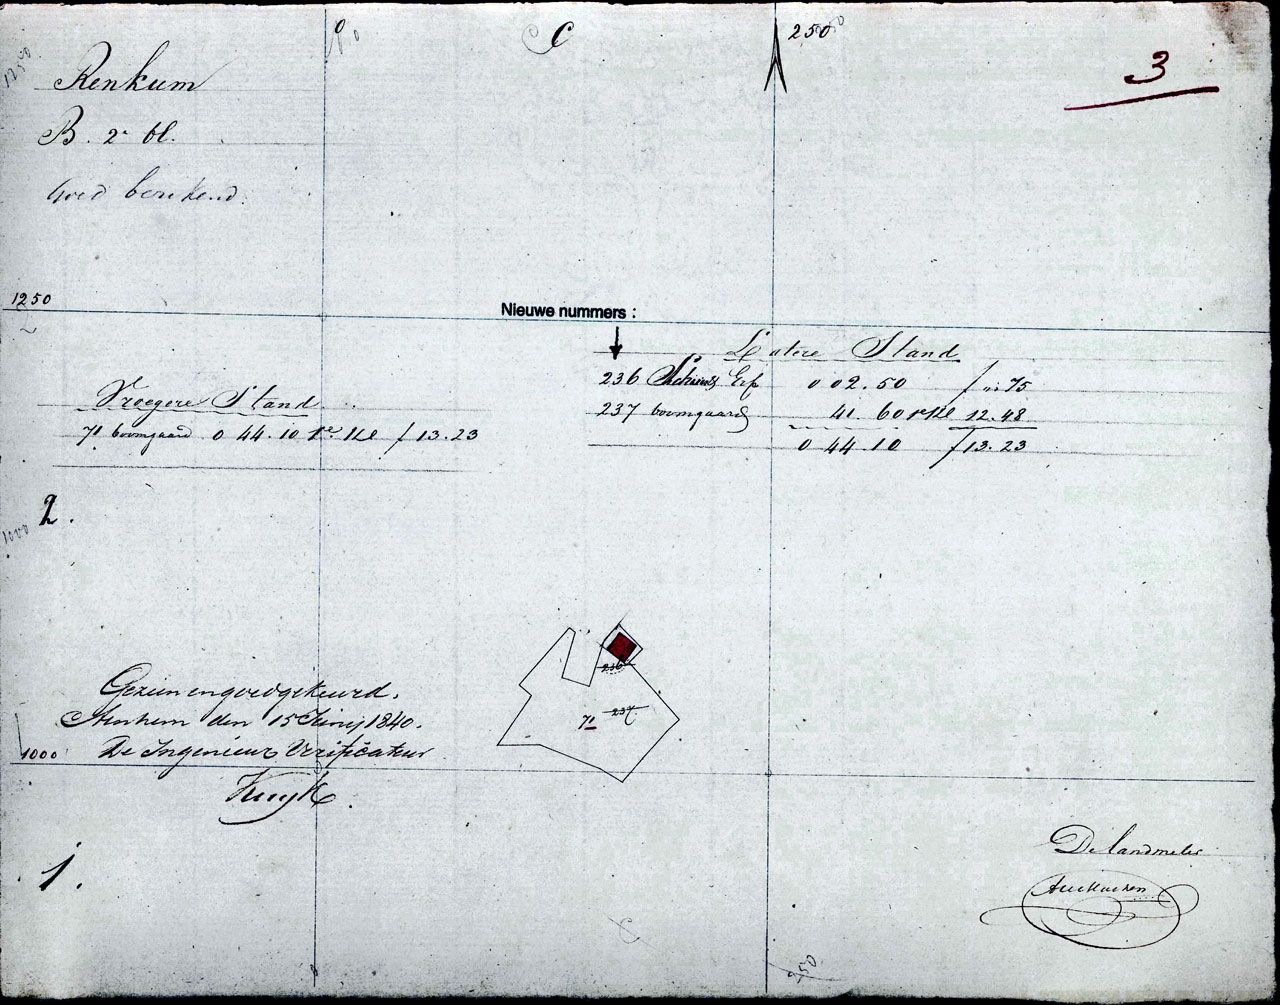 0
C
250
3
1250
Renkum
B. 2e bl.
Goed berekend.
1250
Nieuwe nummers :
Latere Stand
236 Schuur & Erf 0 02.50 f "" 75
237 boomgaard 41.60 1e Kl 12.48
0 44.10 f 13.23
Vroegere Stand
71 boomgaard 0 44.10 1e Kl f 13.23
2.
1000
236
237
71
Gezien en goedgekeurd.
Arnhem den 15 Juny 1840.
De Ingenieur Verificateur
Kuyk
1000
De landmeter
1.
C
0
250